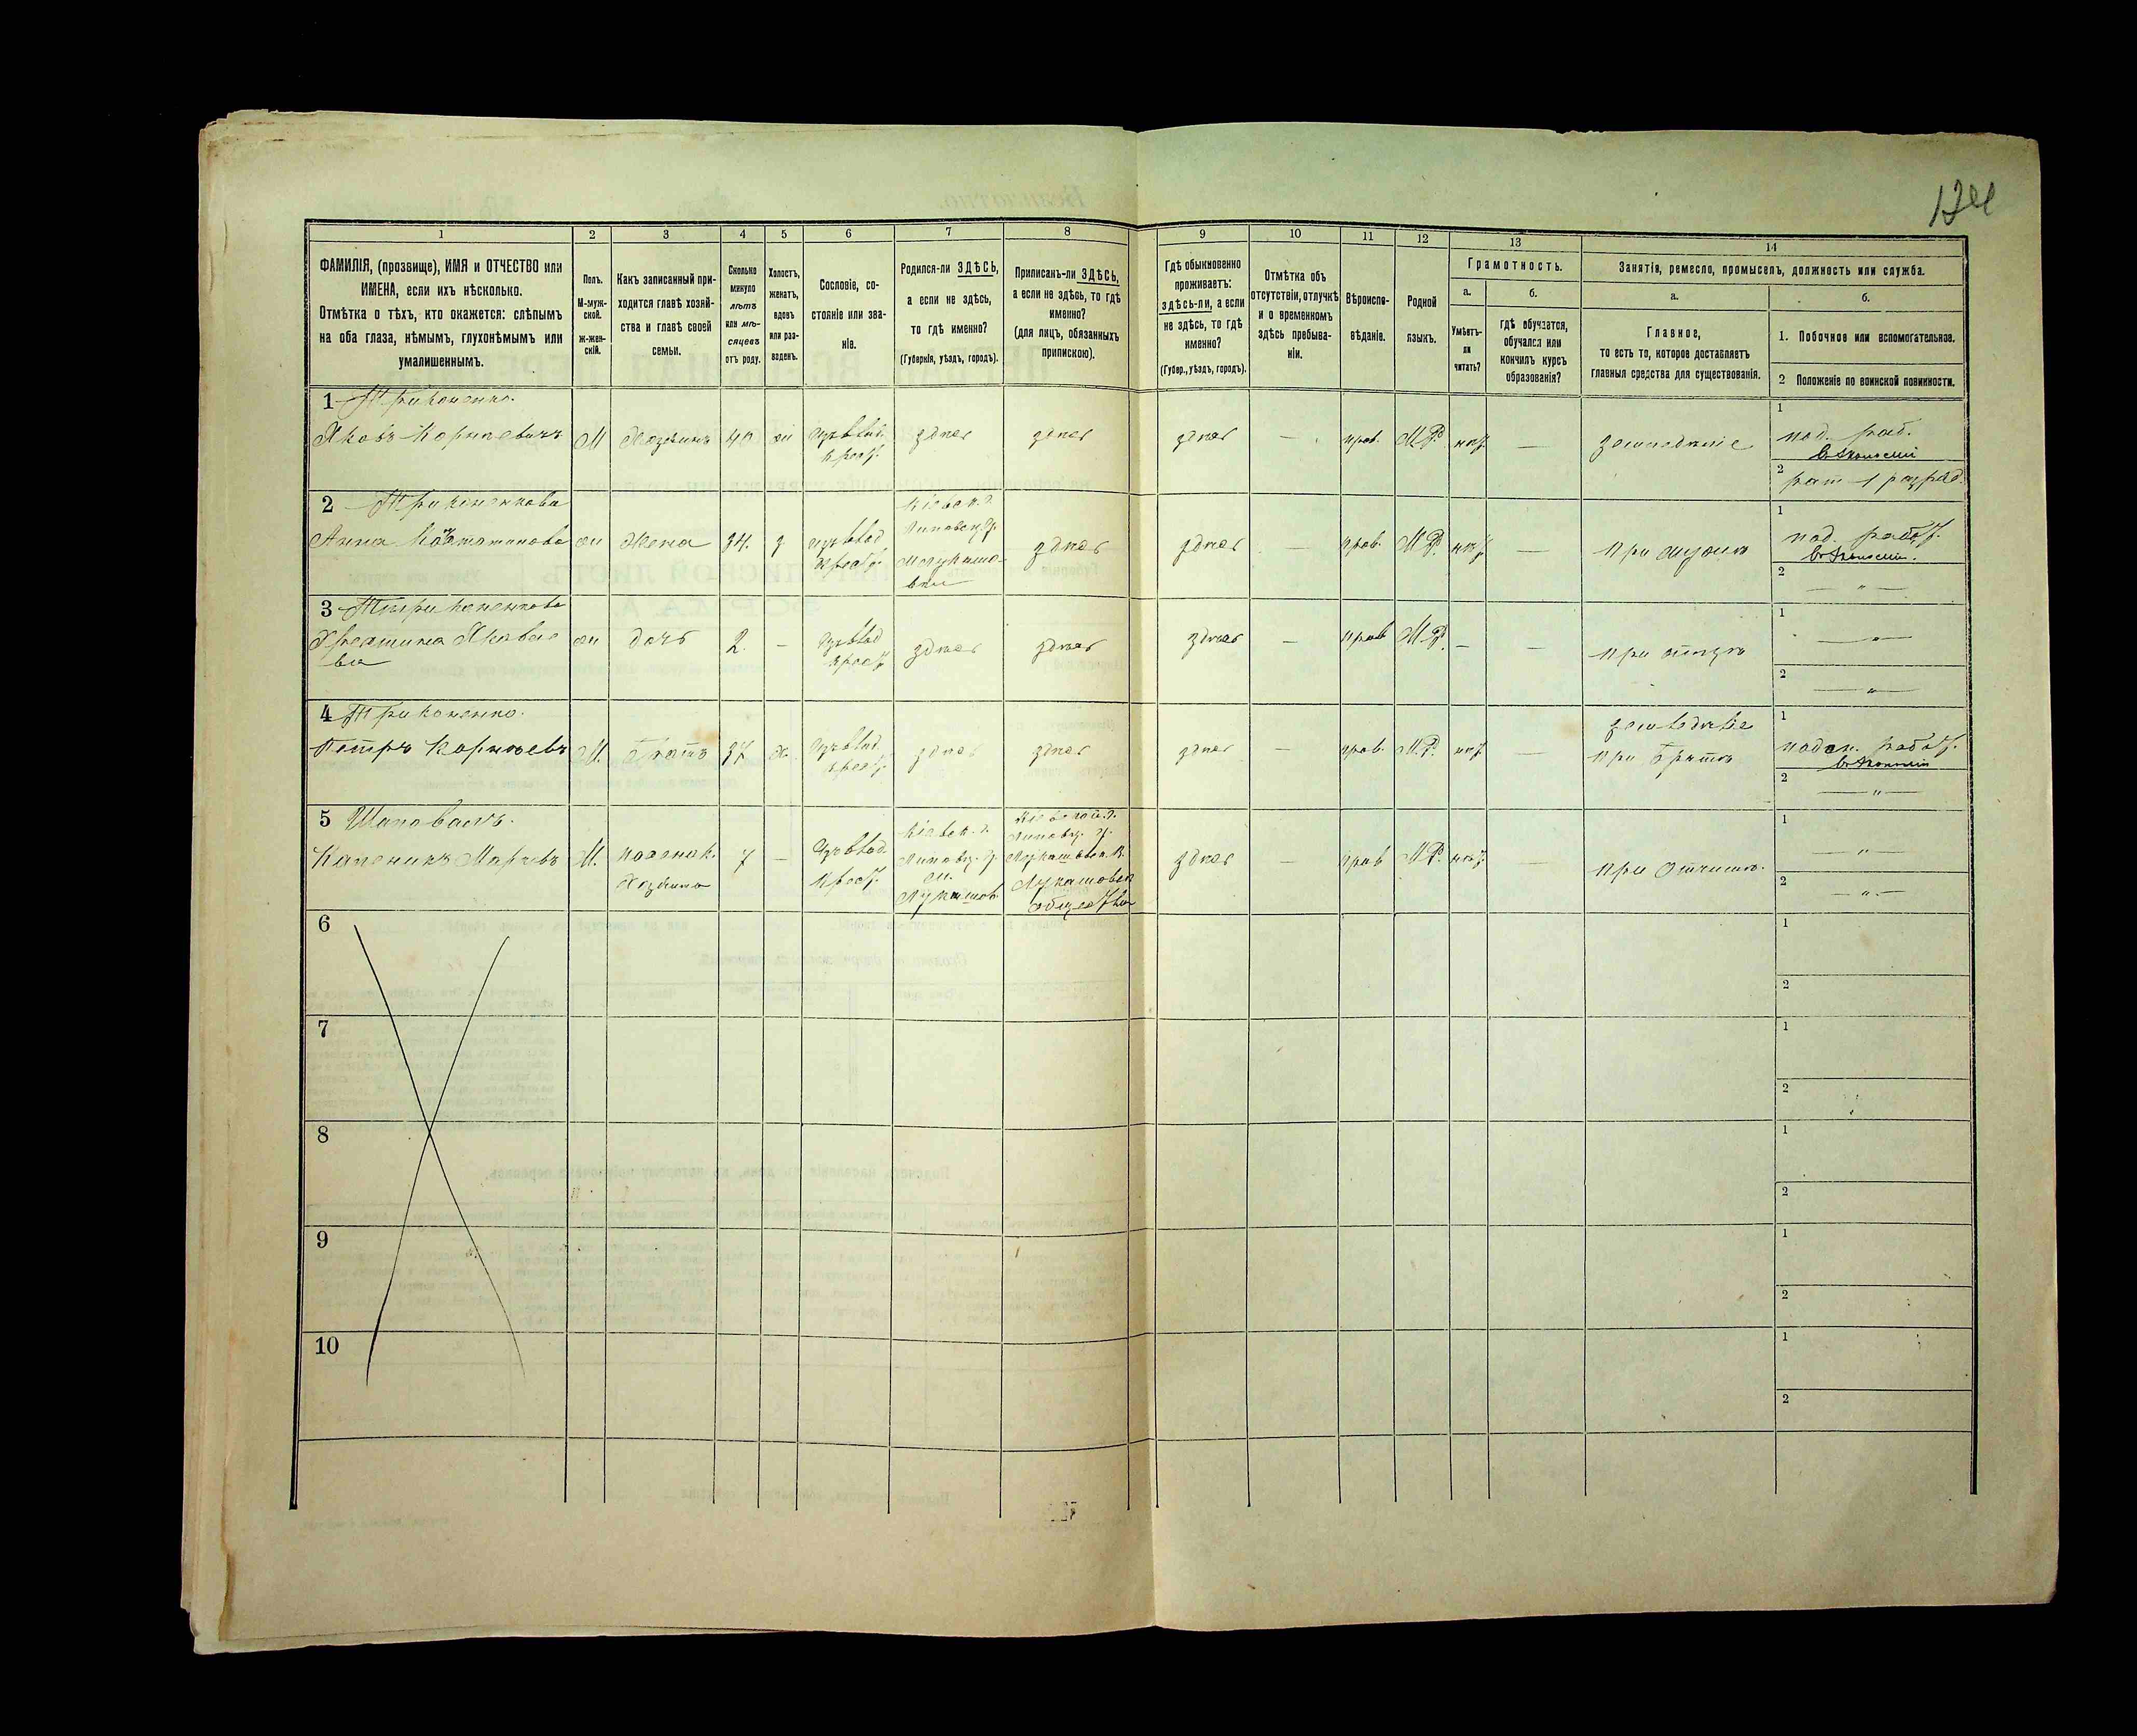 124
1
2
3
4
5
6
7
8
9
10
11
12
13
14
ФАМИЛІЯ, (прозвище), ИМЯ и ОТЧЕСТВО или
ИМЕНА, если ихъ нѣсколько.
Отмѣтка о тѣхъ, кто окажется: слѣпымъ
на оба глаза, нѣмымъ, глухонѣмымъ или
умалишеннымъ.
Полъ.
М-муж-
ской.
ж-жен-
скій.
Какъ записанный при-
ходится главѣ хозяй-
ства и главѣ своей
семьи.
Сколько
минуло
лѣтъ
или мѣ-
сяцевъ
отъ роду.
Холостъ,
женатъ,
вдовъ
или раз-
веденъ.
Сословіе, со-
стояніе или зва-
ніе.
Родился-ли ЗДѢСЬ,
а если не здѣсь,
то гдѣ именно?
(Губернія, уѣздъ, городъ).
Приписанъ-ли ЗДѢСЬ,
а если не здѣсь, то гдѣ
именно?
(для лицъ, обязанныхъ
припискою).
Гдѣ обыкновенно
проживаетъ:
здѣсь-ли, а если
не здѣсь, то гдѣ
именно?
(Губер., уѣздъ, городъ).
Отмѣтка объ
отсутствіи, отлучкѣ
и о временномъ
здѣсь пребыва-
ніи.
Вѣроиспо-
вѣданіе.
Родной
языкъ.
Грамотность.
а.
Умѣетъ-
ли
читать?
б.
гдѣ обучается,
обучался или
кончилъ курсъ
образованія?
Занятія, ремесло, промыселъ, должность или служба.
а.
Главное,
то есть то, которое доставляетъ
главныя средства для существованія.
б.
1. Побочное или вспомогательное.
2 Положеніе по воинской повинности.
1
Яковъ Корнѣевичъ
М
Хозяинъ
40
ж
крест.
здѣсь
здѣсь
здѣсь
—
прав.
М.Р.
нѣт
—
земледѣліе
1
под. раб.
2
рат 1 разряд.
2
Анна
ж
Жена
34.
з
крест.
Кіевск. г.
Липовец. у.
здѣсь
здѣсь
—
прав.
М.Р.
нѣт
—
при мужѣ
1
под. работ.
2
— „ —
3
ж
дочь
2.
—
крест
здѣсь
здѣсь
здѣсь
—
прав
М.Р.
—
—
при отцѣ
1
— „ —
2
— „ —
4
Петръ Корнѣевъ
М.
Братъ
37
х.
крест.
здѣсь
здѣсь
здѣсь
—
прав.
М.Р.
нѣт
—
земледѣліе
при братѣ
1
работ.
2
— „ —
5 Шаповалъ.
М.
Хозяина
7
—
Крест.
Кіевск. г.
Липовец. у.
с.
Лукашов.
Кіевской. г.
Липовец. у.
Лукашовск. в.
Лукашовск
общества
здѣсь
—
прав
М.Р.
нѣт.
—
при отчимѣ.
1
— „ —
2
— „ —
6
1
2
7
1
2
8
1
2
9
1
2
10
1
2